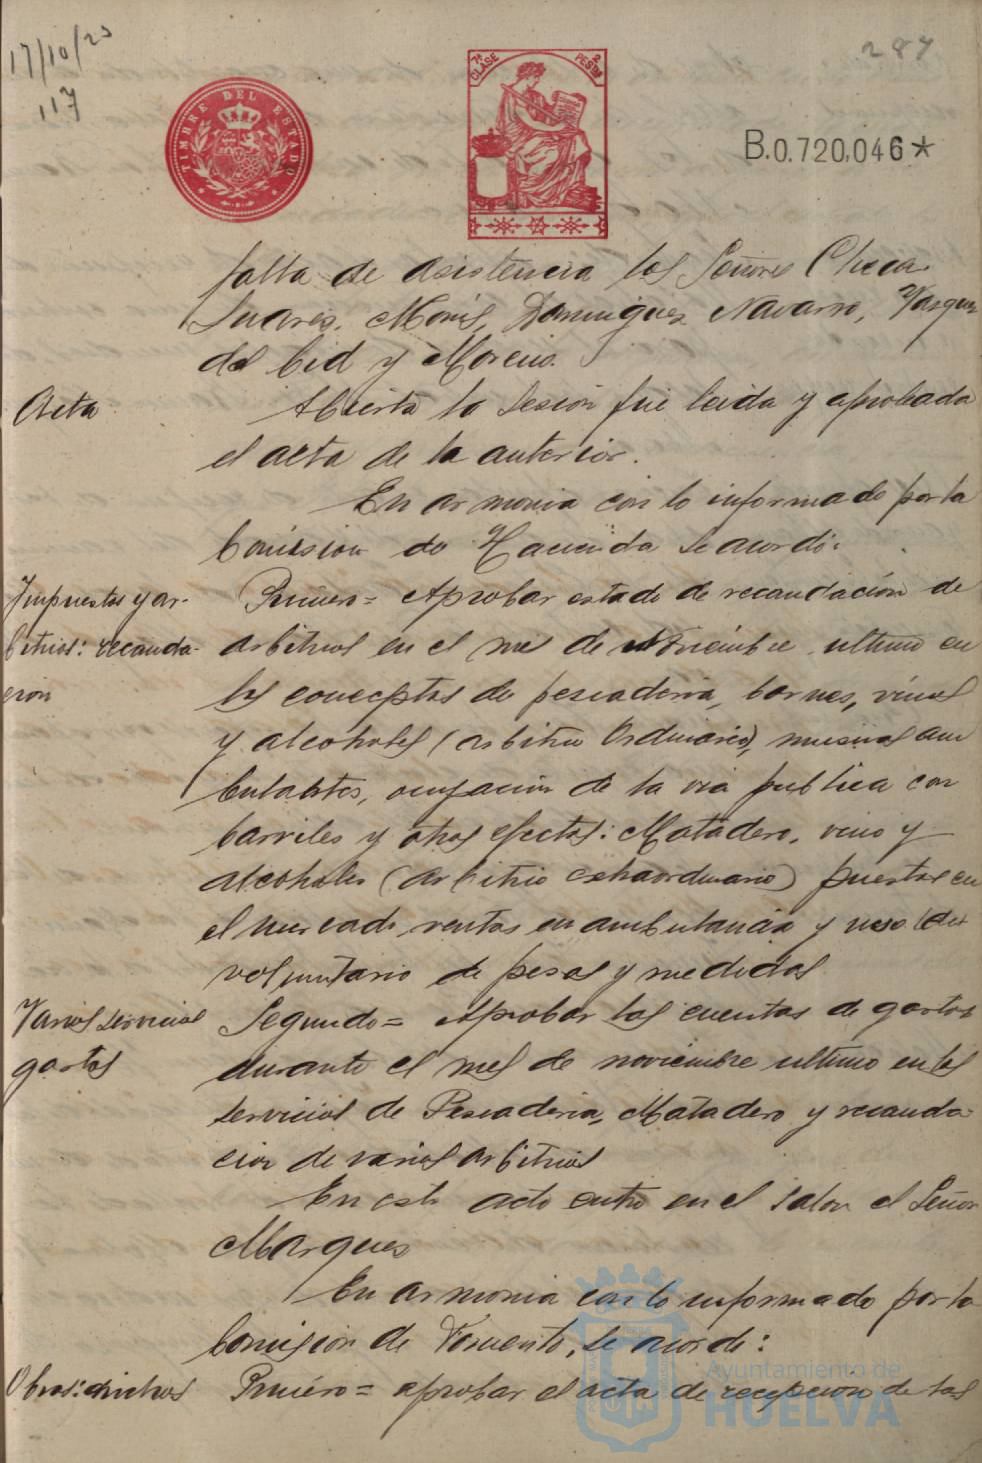 17/10/23
117
287
TIMBRE DEL ESTADO
7ª CLASE
2 PESTAS
B.0.720,046*
falta de asistencia los Señores Checa
Suares, Monís, Dominguez Navarro, Vazquez
del Cid y Moreno.
Acta
Abierta la Sesion fué leida y aprobada
el acta de la anterior.
En armonia con lo informado por la
Comision de Hacienda se acordó:
Impuestos y ar-
bitrios: recauda-
ción
Primero = Aprobar estado de recaudación de
arbitrios en el mes de noviembre ultimo en
los conceptos de pescaderia, carnes, vinos
y alcoholes (arbitrio Ordinario), musicas am
bulantes, ocupacion de la via publica con
barriles y otros efectos: Matadero, vino y
alcoholes (arbitrio extraordinario) puestos en
el mercado, ventas en ambulancia y uso
voluntario de pesas y medidas
Varios servicios
gastos
Segundo = Aprobar las cuentas de gastos
durante el mes de noviembre ultimo en los
servicios de Pescaderia, Matadero y recauda-
cion de varios arbitrios
En este acto entró en el salon el Señor
Marques
En armonia con lo informado por la
Comision de Fomento, se acordó:
Obras:
Primero = aprobar el acta de recepcion de las
Ayuntamiento de
HUELVA